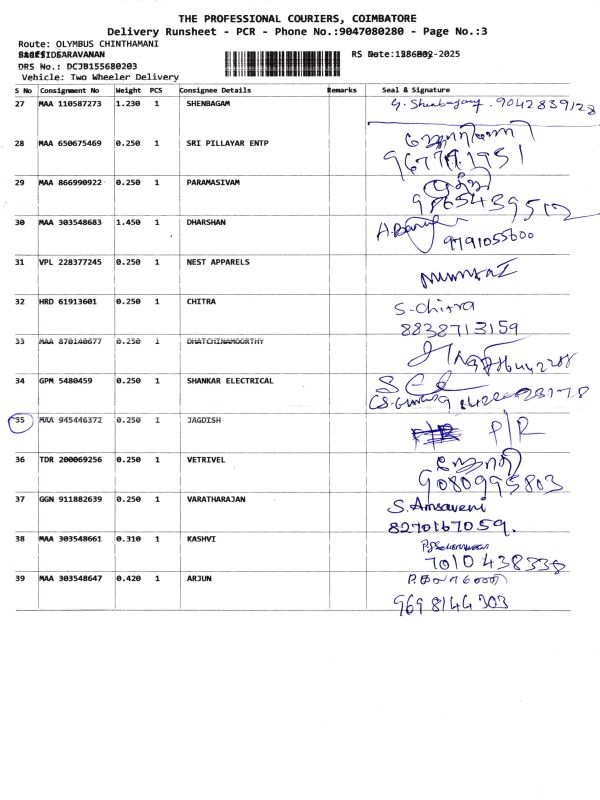 THE PROFESSIONAL COURIERS, COIMBATORE
Delivery Runsheet - PCR - Phone No.:9047080280 - Page No.:3
Route: OLYMBUS CHINTHAMANI
SARAVANAN RS Date: -2025
DRS No.: DCJB155680203
Vehicle: Two Wheeler Delivery
S No Consignment No Weight PCS Consignee Details Remarks Seal & Signature
27 MAA 110587273 1.230 1 SHENBAGAM 9042839128
28 MAA 650675469 0.250 1 SRI PILLAYAR ENTP
29 MAA 866990922 0.250 1 PARAMASIVAM
30 MAA 303548683 1.450 1 DHARSHAN 9791055600
31 VPL 228377245 0.250 1 NEST APPARELS
32 HRD 61913601 0.250 1 CHITRA S-Chitra
8838713159
33 MAA 870140677 0.250 1 DHATCHINAMOORTHY
34 GPM 5480459 0.250 1 SHANKAR ELECTRICAL
35 MAA 945446372 0.250 1 JAGDISH P/R
36 TDR 200069256 0.250 1 VETRIVEL
9080995803
37 GGN 911882639 0.250 1 VARATHARAJAN S. Amsaveni
8270167059.
38 MAA 303548661 0.310 1 KASHVI
7010438338
39 MAA 303548647 0.420 1 ARJUN
9698144303